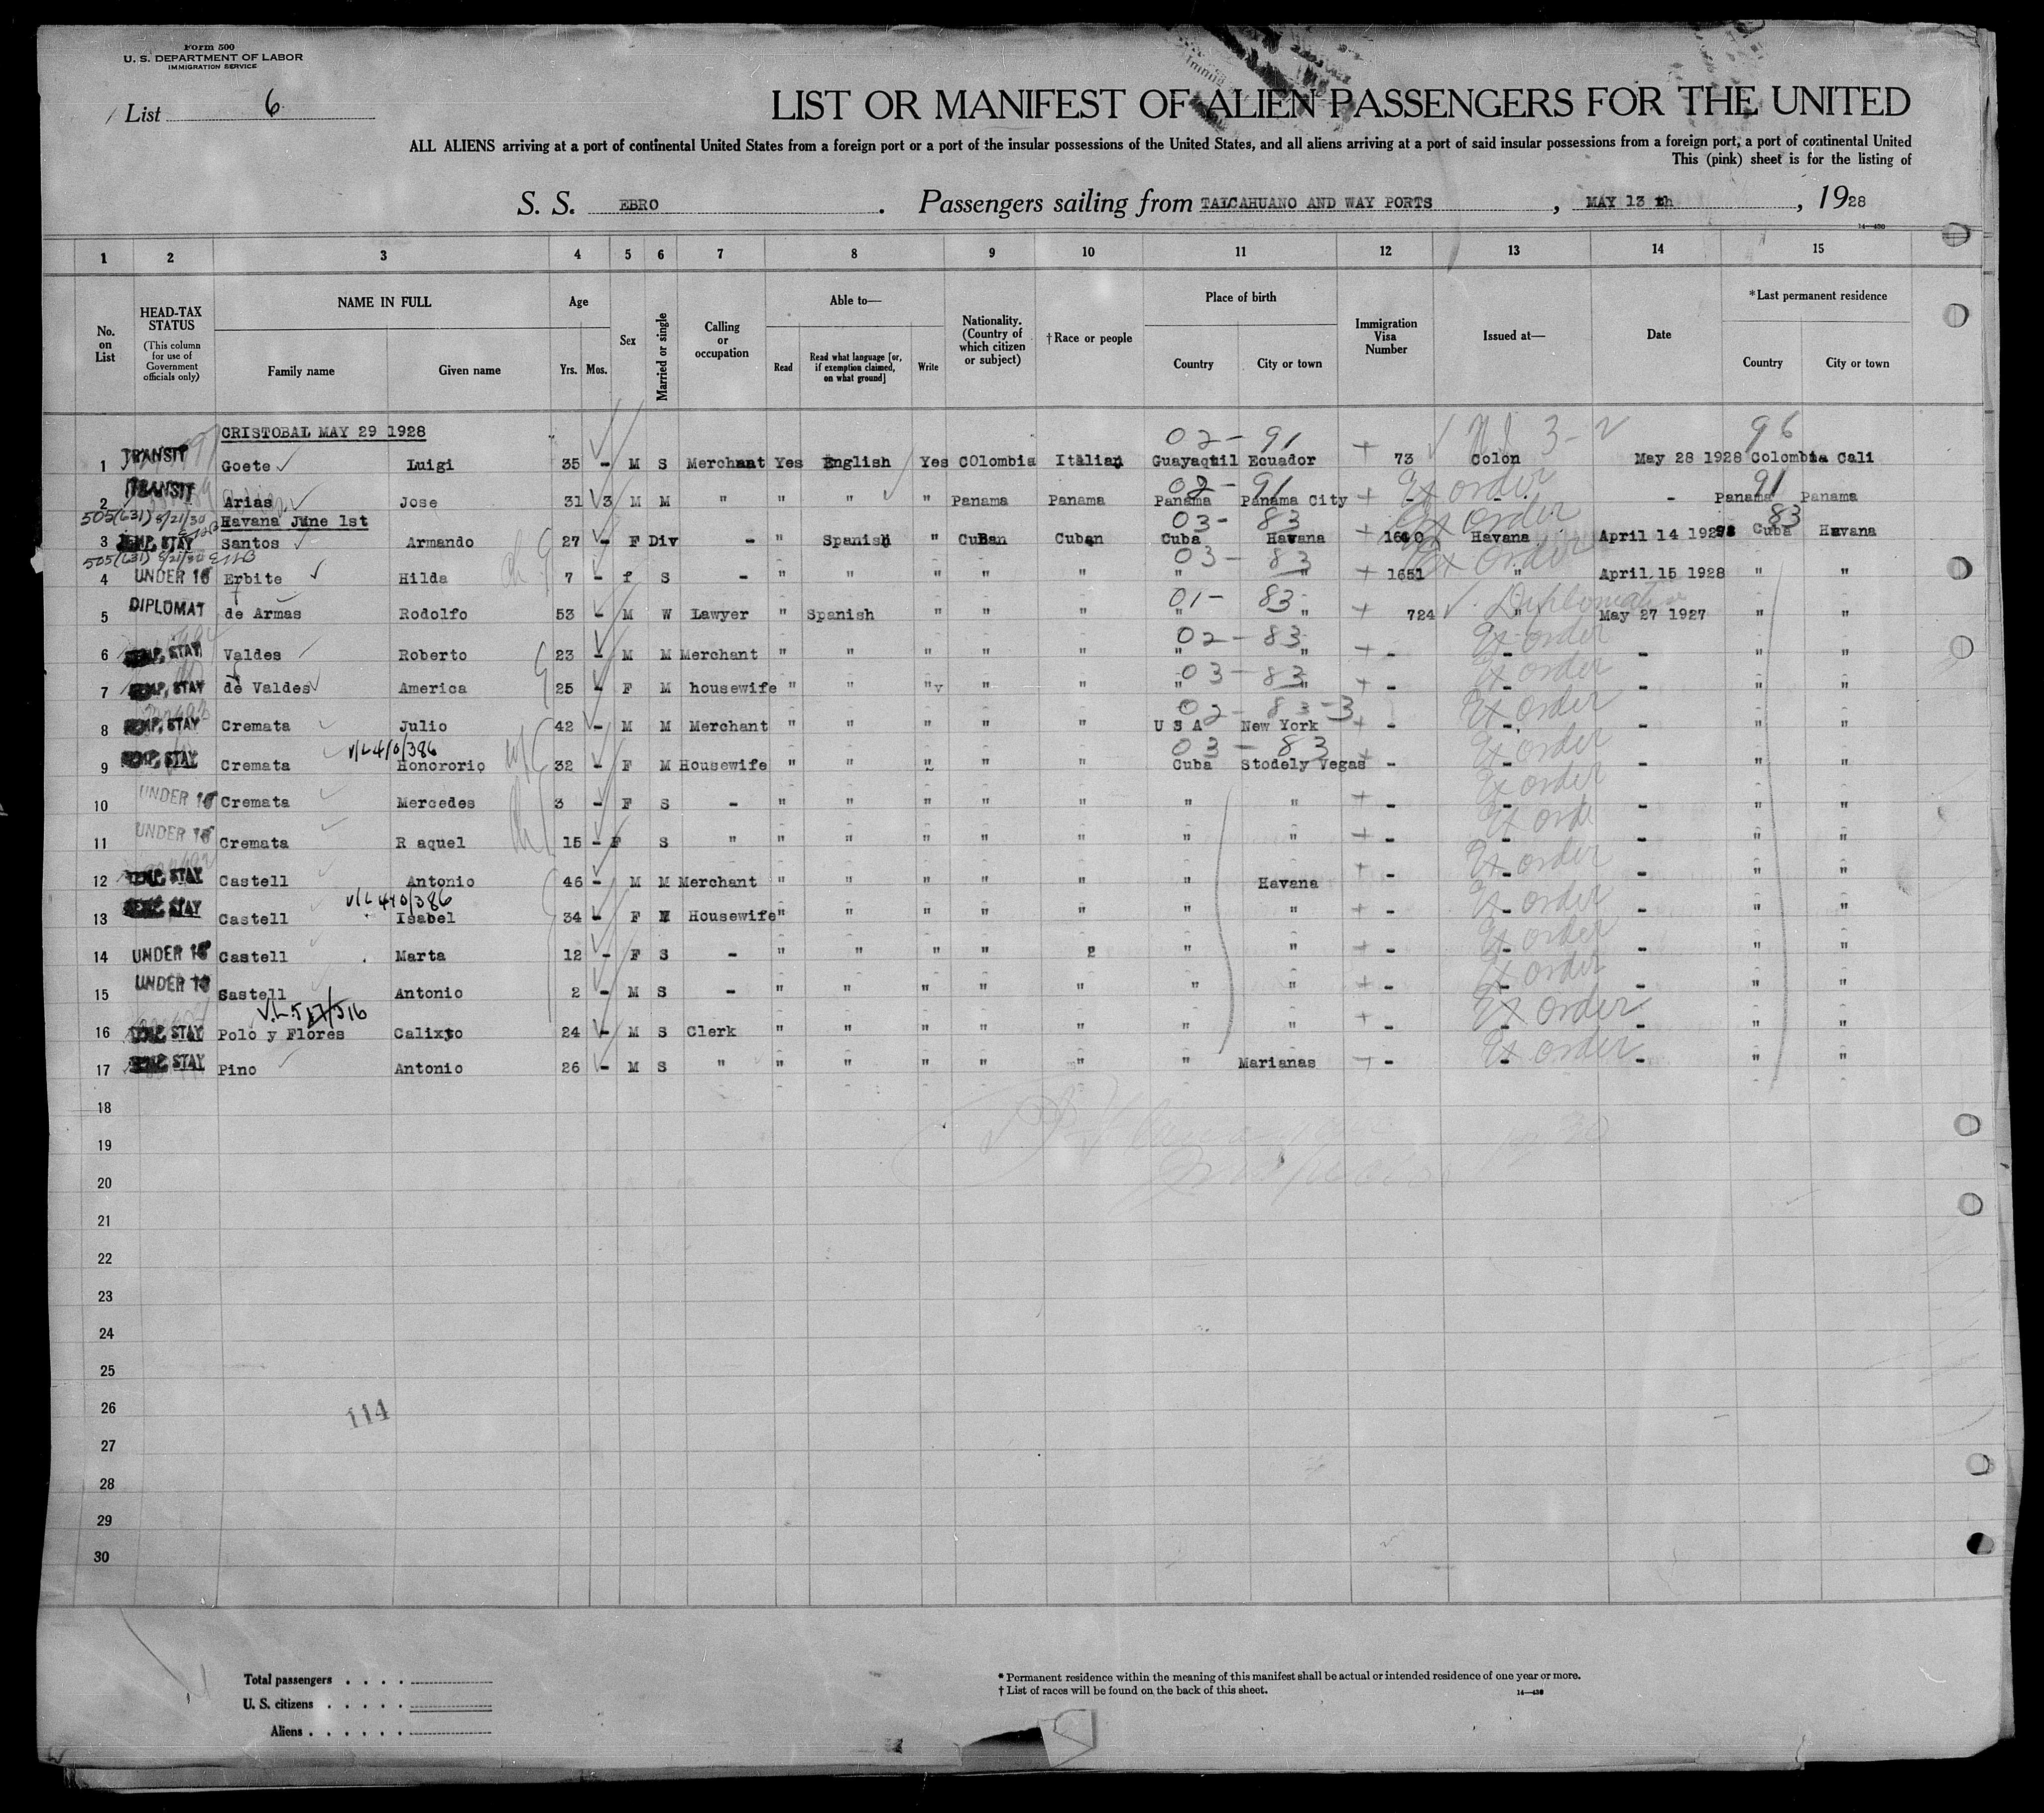 Form 500
U. S. DEPARTMENT OF LABOR
IMMIGRATION SERVICE
List 6
LIST OR MANIFEST OF ALIEN PASSENGERS FOR THE UNITED
ALL ALIENS arriving at a port of continental United States from a foreign port or a port of the insular possessions of the United States, and all aliens arriving at a port of said insular possessions from a foreign port, a port of continental United
This (pink) sheet is for the listing of
S. S. EBRO. Passengers sailing from TALCAHUANO AND WAY PORTS, MAY 13 th, 1928
14—430
1 2 3 4 5 6 7 8 9 10 11 12 13 14 15
No. on List
HEAD-TAX STATUS
(This column for use of Government officials only)
NAME IN FULL
Family name Given name
Age
Yrs. Mos.
Sex
Married or single
Calling or occupation
Able to—
Read Read what language [or, if exemption claimed, on what ground] Write
Nationality. (Country of which citizen or subject)
†Race or people
Place of birth
Country City or town
Immigration Visa Number
Issued at—
Date
*Last permanent residence
Country City or town
CRISTOBAL MAY 29 1928
02 - 91 3-2 96
1 TRANSIT Goete Luigi 35 - M S Merchant Yes English Yes COlombia Italian Guayaquil Ecuador 73 Colon May 28 1928 Colombia Cali
02 - 91 Ex order 91
2 TRANSIT Arias Jose 31 3 M M " " " " Panama Panama Panama Panama City - - - Panama Panama
505(631) 8/21/30
Havana June 1st
03 - 83 Ex order 83
3 TEMP. STAY Santos Armando 27 - F Div - " Spanish " Cuban Cuban Cuba Havana 1640 Havana April 14 1928 Cuba Havana
505(631) 8/21/30
03 - 83 Ex order
4 UNDER 16 Erbite Hilda 7 - f S - " " " " " " " 1651 " April 15 1928 " "
01 - 83 Diplomatic
5 DIPLOMAT de Armas Rodolfo 53 - M W Lawyer " Spanish " " " " " 724 " May 27 1927 " "
02 - 83 Ex order
6 TEMP. STAY Valdes Roberto 23 - M M Merchant " " " " " " " - - - " "
03 - 83 Ex order
7 TEMP. STAY de Valdes America 25 - F M housewife " " " " " " " - - - " "
02 - 83-3 Ex order
8 TEMP. STAY Cremata Julio 42 - M M Merchant " " " " " U S A New York - - - " "
V/L 410/386 03 - 83 Ex order
9 TEMP. STAY Cremata Honororio 32 - F M Housewife " " " " " Cuba Stodely Vegas - - - " "
Ex order
10 UNDER 16 Cremata Mercedes 3 - F S - " " " " " " " - - - " "
Ex orde
11 UNDER 16 Cremata R aquel 15 - F S " " " " " " " " - - - " "
Ex order
12 TEMP. STAY Castell Antonio 46 - M M Merchant " " " " " " Havana - - - " "
V/L 440/386 Ex order
13 TEMP. STAY Castell Isabel 34 - F M Housewife " " " " " " " - - - " "
Ex order
14 UNDER 16 Castell Marta 12 - F S - " " " " " " - - - " "
Ex order
15 UNDER 16 Castell Antonio 2 - M S - " " " " " " " - - - " "
V.L 517/516 Ex order
16 TEMP. STAY Polo y Flores Calixto 24 - M S Clerk " " " " " " " - - - " "
Ex order
17 TEMP. STAY Pino Antonio 26 - M S " " " " " " " Marianas - - - " "
18
19
20
21
22
23
24
25
26
114
27
28
29
30
Total passengers
U. S. citizens
Aliens
* Permanent residence within the meaning of this manifest shall be actual or intended residence of one year or more.
† List of races will be found on the back of this sheet.
14—430